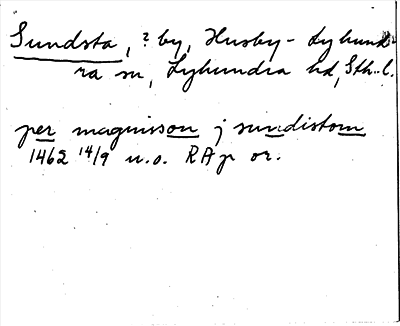 Sundsta, ? by, Husby-Lyhund-
ra sn, Lyhundra hd, Sth. l.
per magnisson j sundistom
1462 14/9 u.o. RAp or.